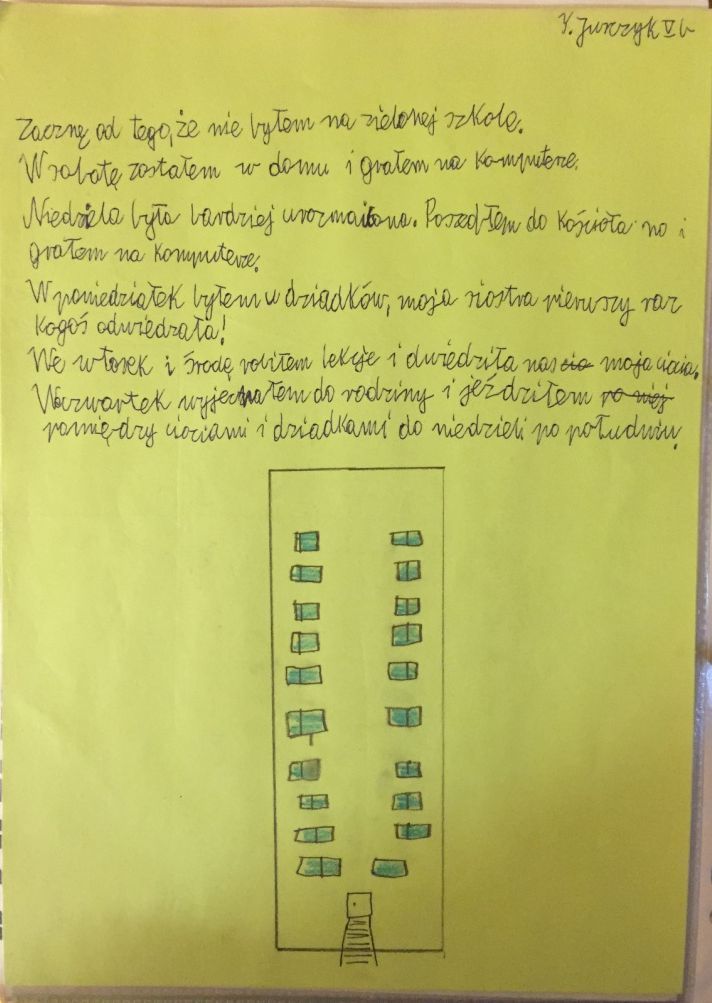 K. Jurczyk V b
Zacznę od tego, że nie byłem na zielonej szkole.
W sobotę zostałem w domu i grałem na komputerze.
Niedziela była bardziej urozmaicona. Poszedłem do kościoła no i
grałem na komputerze.
W poniedziałek byłem u dziadków, moja siostra pierwszy raz
kogoś odwiedzała!
We wtorek i środę robiłem lekcje i dwiedziła nas moja ciocia.
W czwartek wyjechałem do rodziny i jeździłem
pomiędzy ciociami i dziadkami do niedzieli po południu.